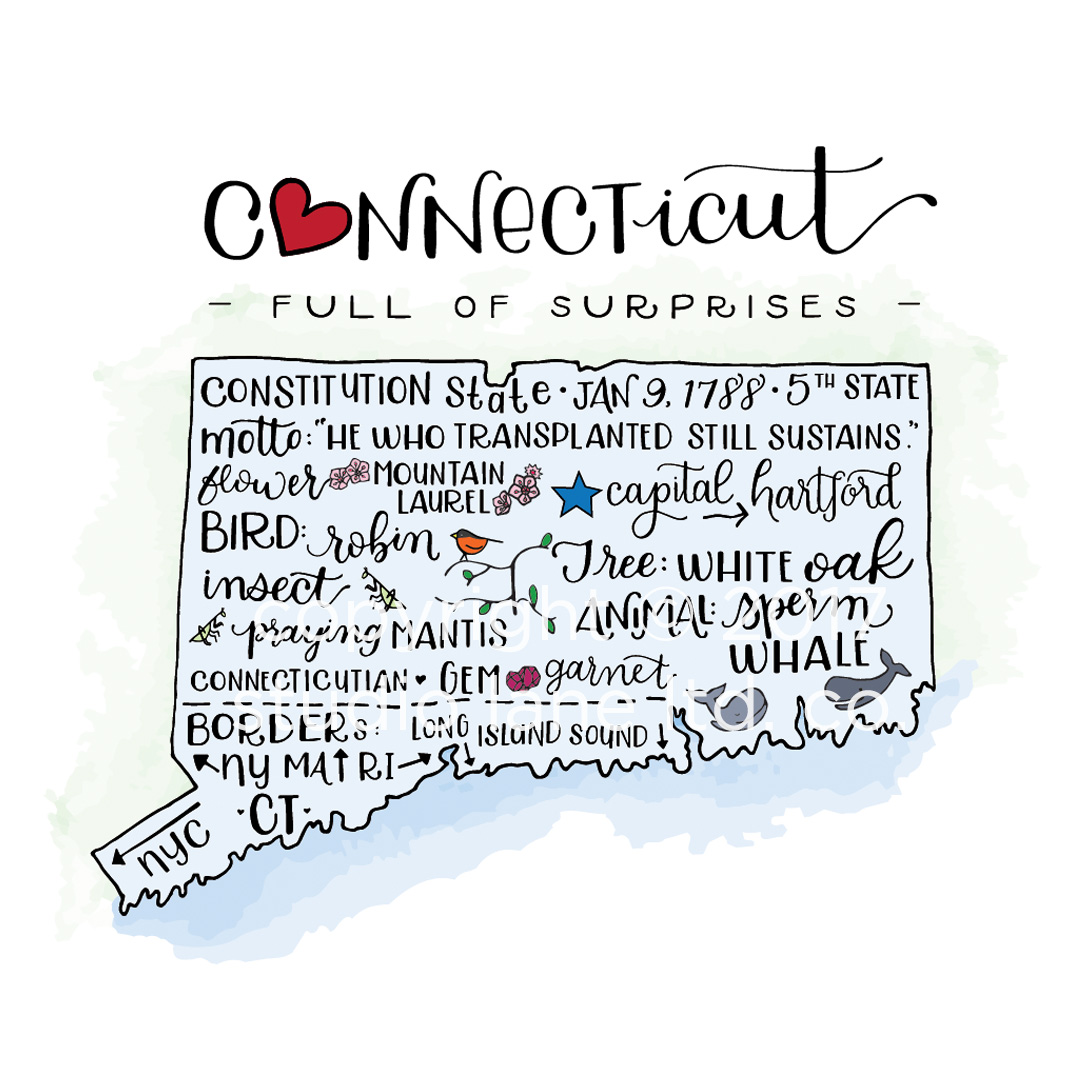 CONNECTICUT
- FULL OF SURPRISES -
CONSTITUTION State · JAN 9, 1788 · 5TH STATE
motto: "HE WHO TRANSPLANTED STILL SUSTAINS."
flower MOUNTAIN LAUREL
capital → hartford
BIRD: robin
Tree: WHITE oak
insect
praying MANTIS
ANIMAL: sperm
WHALE
CONNECTICUTIAN ♥ GEM garnet
BORDERS: LONG ISLAND SOUND
NY MA RI
♥ CT ♥
NYC
copyright © 2017
studio lane ltd. co.